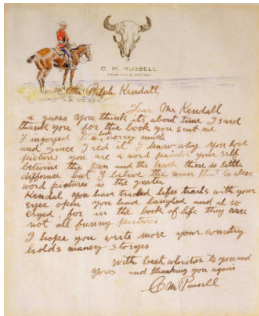 C. M. RUSSELL
GREAT FALLS, MONTANA
Ralph Kendall
Dear Mr Kendall
I guess you think its about time I send
thank you for the book you sent me
I injoyed it very much
and since I red it I know why you love
pictures you are a word painter your self
betwine the pen and the brush there is little
diffornce but I belive the man that makes
word pictures is the greater
Kendal you have traveled lifes trails with your
eyes open you have laughed and it so
cryed for in the book of life they are
not all funny pictures
I hope you write more your country
holds maney storyes
With best whishes to you and
yours and thanking you again
C M Russell